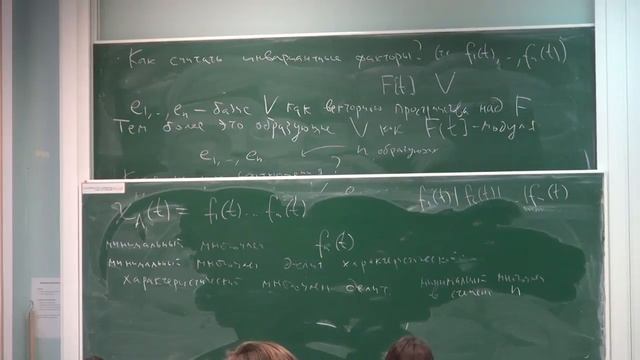 Как считать инвариантные факторы? (т.е. f₁(t), .., fₙ(t))
F[t] V
e₁, .., eₙ – базис V как векторного пространства над F
Тем более это образующие V как F[t]-модуля
e₁, .., eₙ ← n образующих
χ_A(t) = f₁(t) ... fₙ(t) f₁(t) | f₂(t) | .. | fₙ(t)
минимальный многочлен fₙ(t)
минимальный многочлен делит характеристический
характеристический многочлен делит минимальный многочлен
в степени n